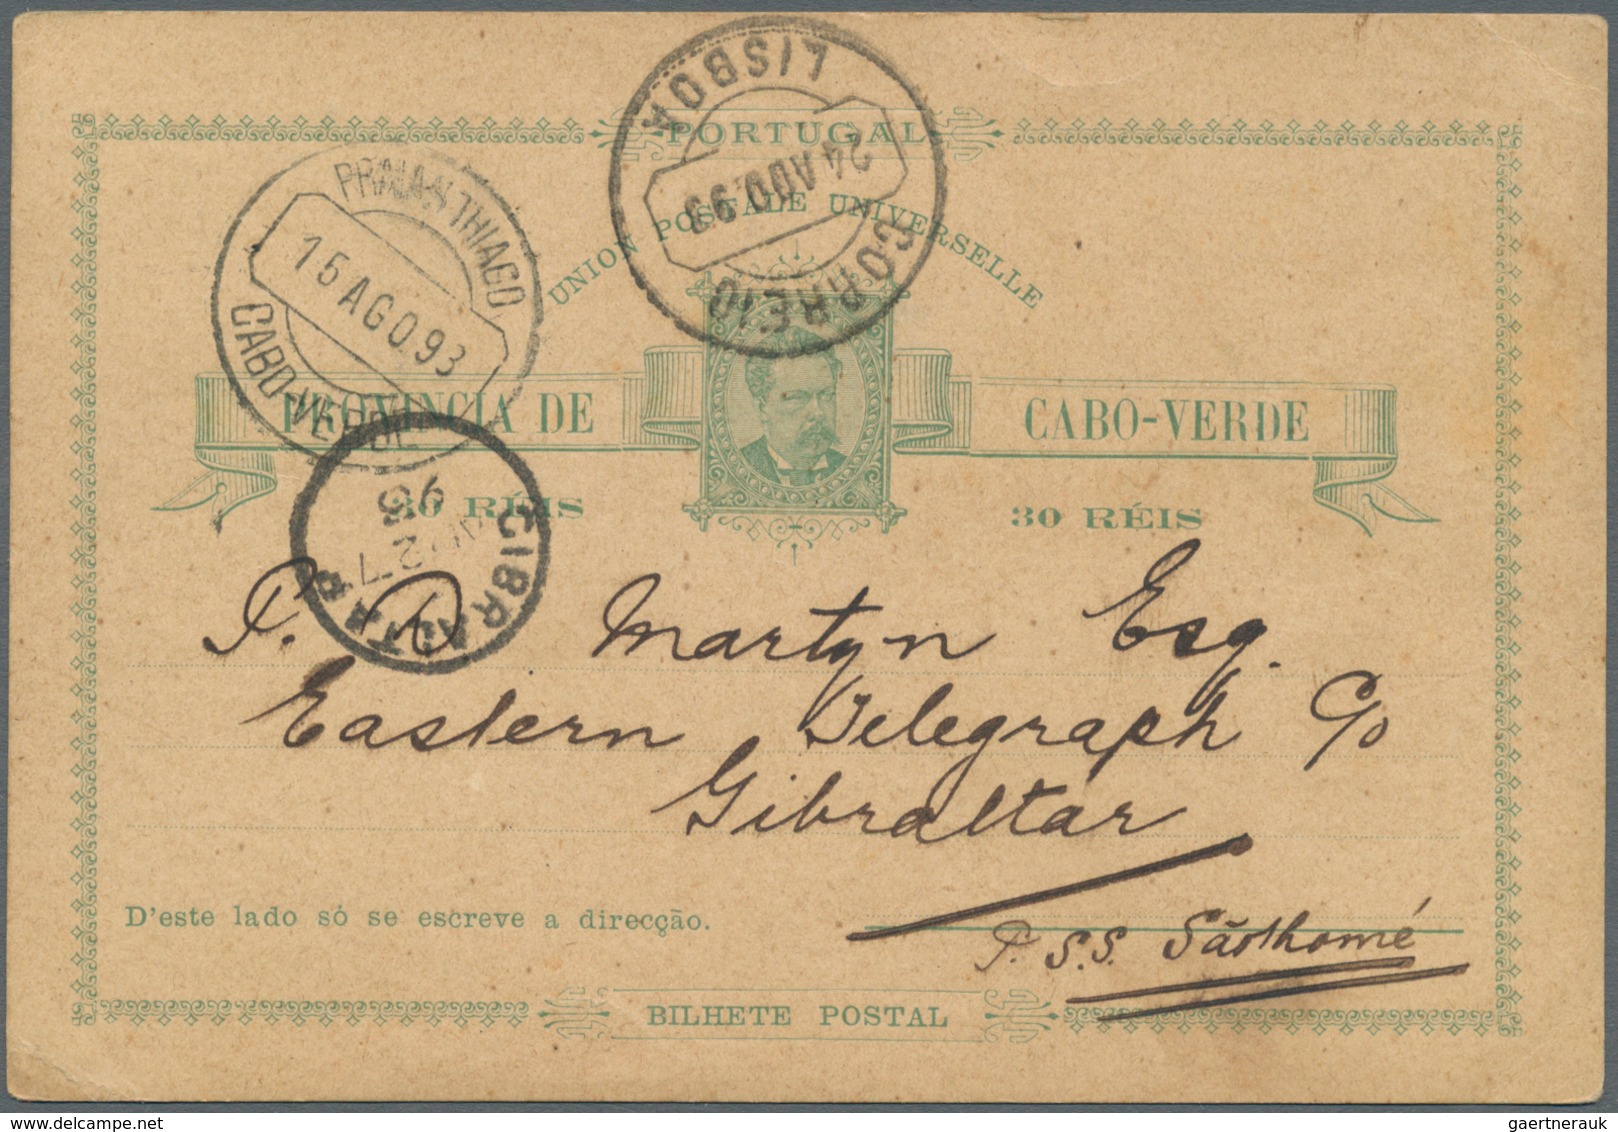 PORTUGAL
UNION POSTALE UNIVERSELLE
PROVINCIA DE CABO-VERDE
30 RÉIS 30 RÉIS
LISBOA
24 AGO 93
CORREIO
PRAIA-S. THIAGO
15 AGO. 93
CABO-VERDE
GIBRALTAR
27 93
P. D Martyn Esq.
Eastern Telegraph C/o
Gibraltar
D'este lado só se escreve a direcção.
P. S.S. Sãothomé
BILHETE POSTAL
gaertnerauk@delcampe.net